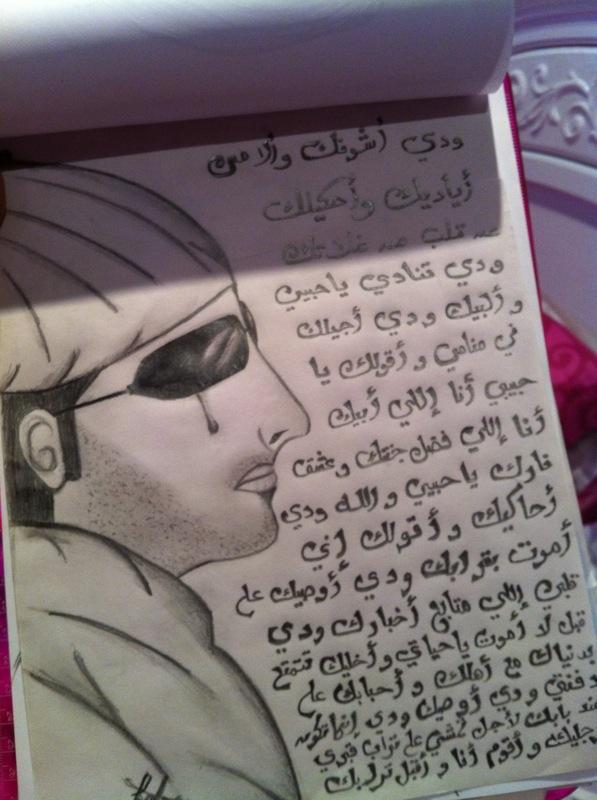 ودي أشوفك وألامس
أياديك وأحكيلك
عن قلب من غلاتك
ودي تنادي ياحبيبي
وألبيك ودي أجيلك
في منامي وأقولك يا
حبيبي أنا إللي أبيك
أنا إللي فضل جنتك وعشق
نارك ياحبيبي والله ودي
أحاكيك وأقولك إني
أموت بقرابك ودي أأوصيك على
قلبي إللي متابع أخبارك ودي
قبل لا أموت ياحياتي وأخليك تتمتع
بدنياك مع أهلك وأحبابك على
دفنتي ودي أوصيك ودي إنها تكون
عند بابك لأجل تمشي على تراب قبري
وأقوم أنا وأقبل ترابك